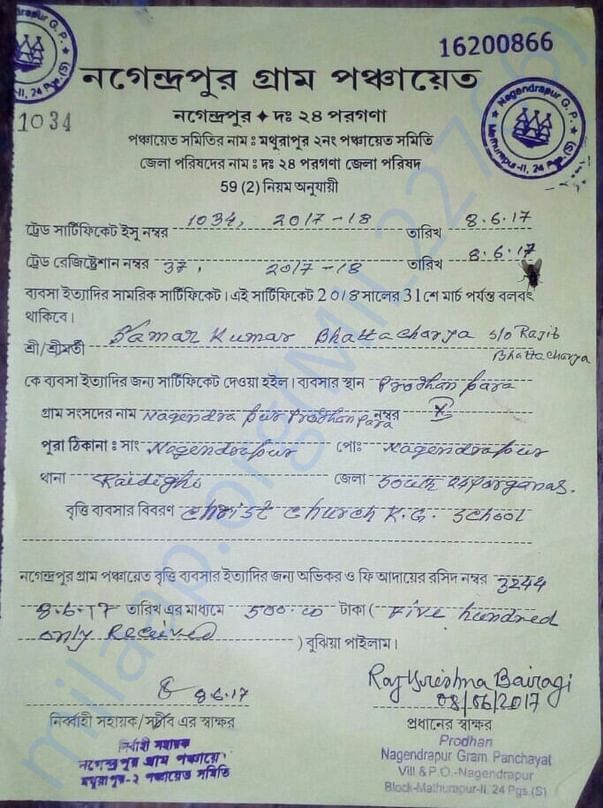 16200866
1034
নগেন্দ্রপুর গ্রাম পঞ্চায়েত
Nagendrapur G. P.
Mathurapur-II, 24 Pgs. (S)
নগেন্দ্রপুর ✦ দঃ ২৪ পরগণা
পঞ্চায়েত সমিতির নাম : মথুরাপুর ২নং পঞ্চায়েত সমিতি
জেলা পরিষদের নাম : দঃ ২৪ পরগণা জেলা পরিষদ
59 (2) নিয়ম অনুযায়ী
ট্রেড সার্টিফিকেট ইসু নম্বর 1034, 2017-18 তারিখ 8.6.17
ট্রেড রেজিষ্ট্রেশান নম্বর 37, 2017-18 তারিখ 8.6.17
ব্যবসা ইত্যাদির সামরিক সার্টিফিকেট। এই সার্টিফিকেট 2018 সালের 31 শে মার্চ পর্যন্ত বলবৎ
থাকিবে।
শ্রী/শ্রীমতী Samar Kumar Bhattacharya S/o Rajib
Bhattacharya
কে ব্যবসা ইত্যাদির জন্য সার্টিফিকেট দেওয়া হইল। ব্যবসার স্থান Prodhan para
গ্রাম সংসদের নাম Nagendra pur Prodhan Para নম্বর
পূরা ঠিকানা : সাং Nagendrapur পোঃ Nagendrapur
থানা Raidighi জেলা South 24 Parganas.
বৃত্তি ব্যবসার বিবরণ Christ Church K.G. School
নগেন্দ্রপুর গ্রাম পঞ্চায়েত বৃত্তি ব্যবসার ইত্যাদির জন্য অভিকর ও ফি আদায়ের রসিদ নম্বর 3244
8.6.17 তারিখ এর মাধ্যমে 500.00 টাকা ( Five hundred
only Received ) বুঝিয়া পাইলাম।
8.6.17
Raj Krishna Bairagi
08/06/2017
নির্ব্বাহী সহায়ক/সচীব এর স্বাক্ষর
প্রধানের স্বাক্ষর
নির্বাহী সহায়ক
নগেন্দ্রপুর গ্রাম পঞ্চায়েত
মথুরাপুর-২ পঞ্চায়েত সমিতি
Prodhan
Nagendrapur Gram Panchayat
Vill & P.O.-Nagendrapur
Block-Mathurapur-II, 24 Pgs.(S)